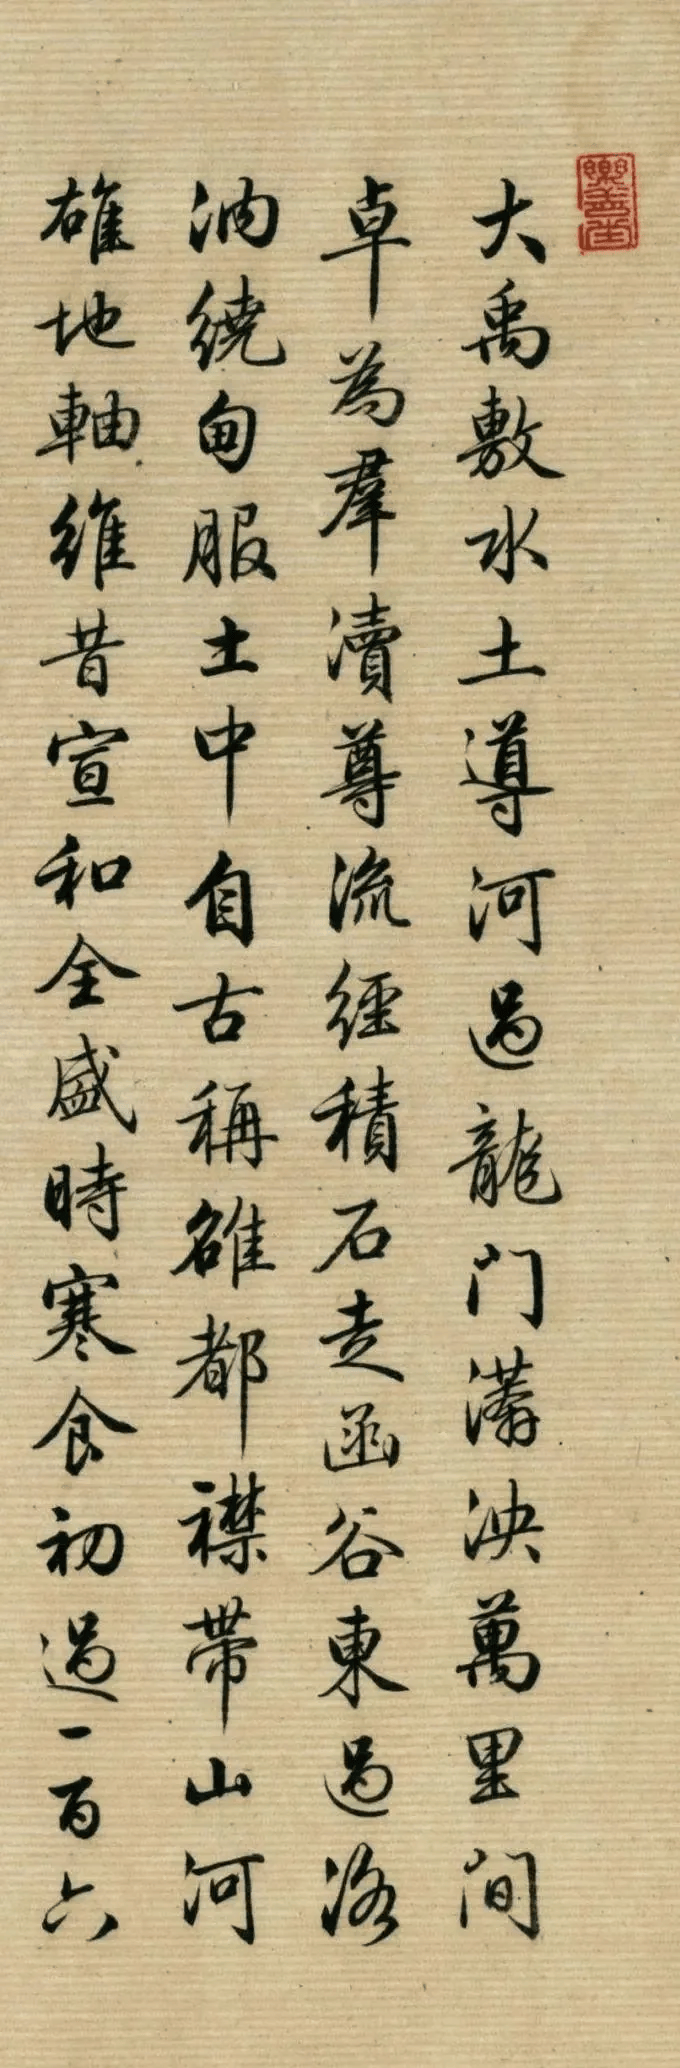 樂善堂
大禹敷水土導河過龍門滿泱萬里間
卓為羣瀆尊流經積石走函谷東過洛
汭繞甸服土中自古稱雄都襟帶山河
雄地軸維昔宣和全盛時寒食初過一百六